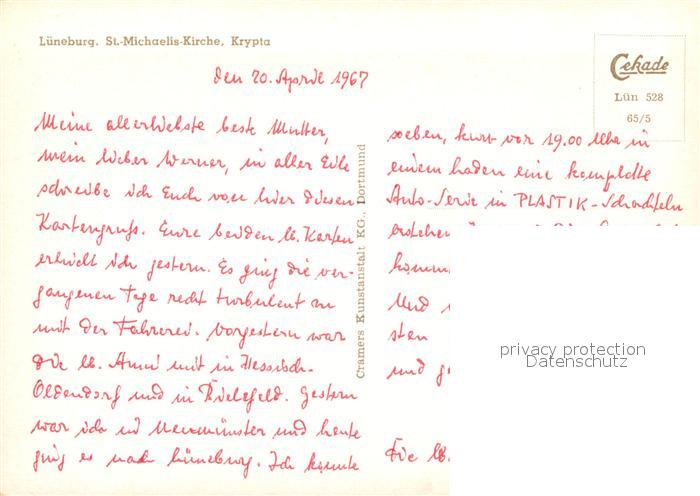 Lüneburg. St.-Michaelis-Kirche, Krypta
Cekade
Lün 528
65/5
den 20. April 1967
Meine allerliebste beste Mutter,
mein lieber Werner, in aller Eile
schreibe ich Euch von hier diesen
Kartengruß. Eure beiden lb. Karten
erhielt ich gestern. Es ging die ver-
gangenen Tage recht turbulent zu
mit der Fahrerei. Vorgestern war
die lb. Anni mit in Hessisch-
Oldendorf und in Bielefeld. Gestern
war ich in Neumünster und heute
ging es nach Lüneburg. Ich konnte
Cramers Kunstanstalt KG., Dortmund
soeben, kurz vor 19.00 Uhr in
einem Laden eine komplette
Auto-Serie in PLASTIK-Schachteln
erstehen
komm
Und
sten
und
Die lb.
privacy protection
Datenschutz